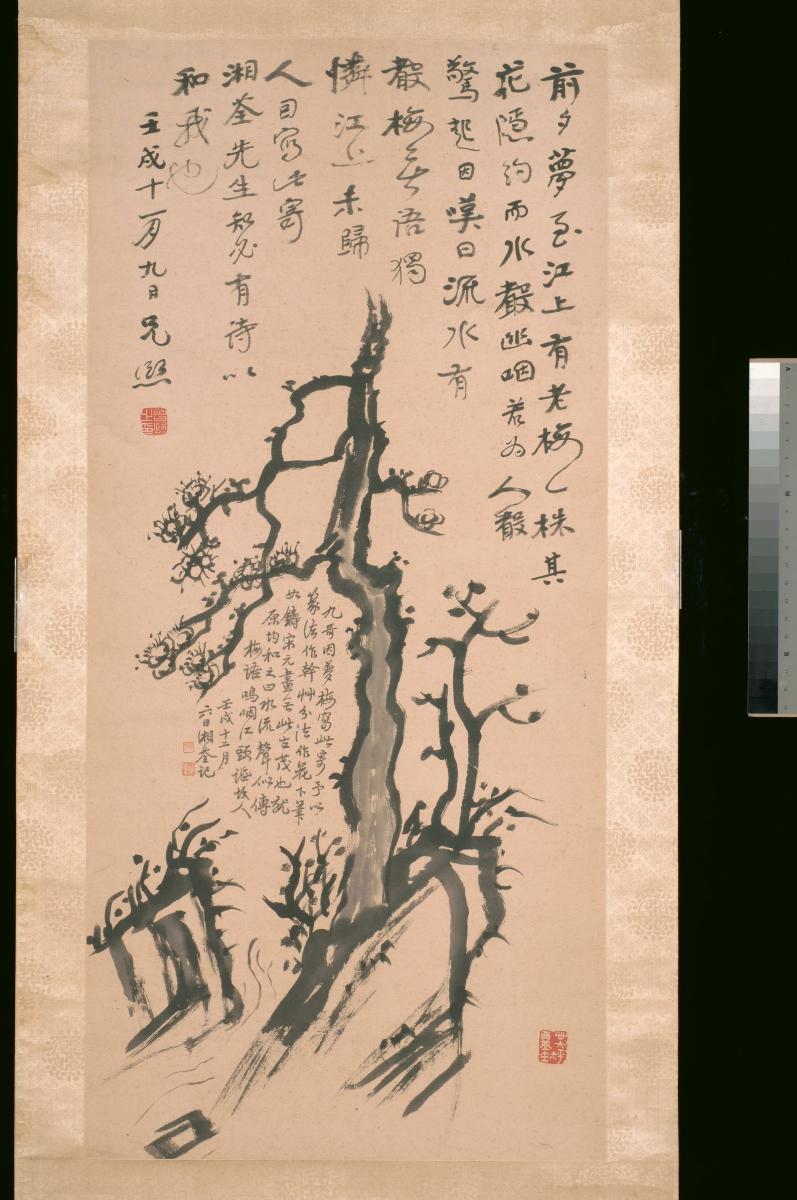 前夕夢至江上有老梅一株其
花隱約而水聲幽咽若為人聲
驚起因嘆曰流水有
聲梅無語獨
憐江上未歸
人因寫此寄
湘荃先生知必有詩以
和我也
壬戌十一月九日兄熙
九哥因夢梅寫此寄予以
篆法作幹艸分法作花下筆
如鑄宋元畫無此古茂也就
原均和之曰水流聲似傳
梅語嗚咽江頭
故人
壬戌十二月
六日湘荃記